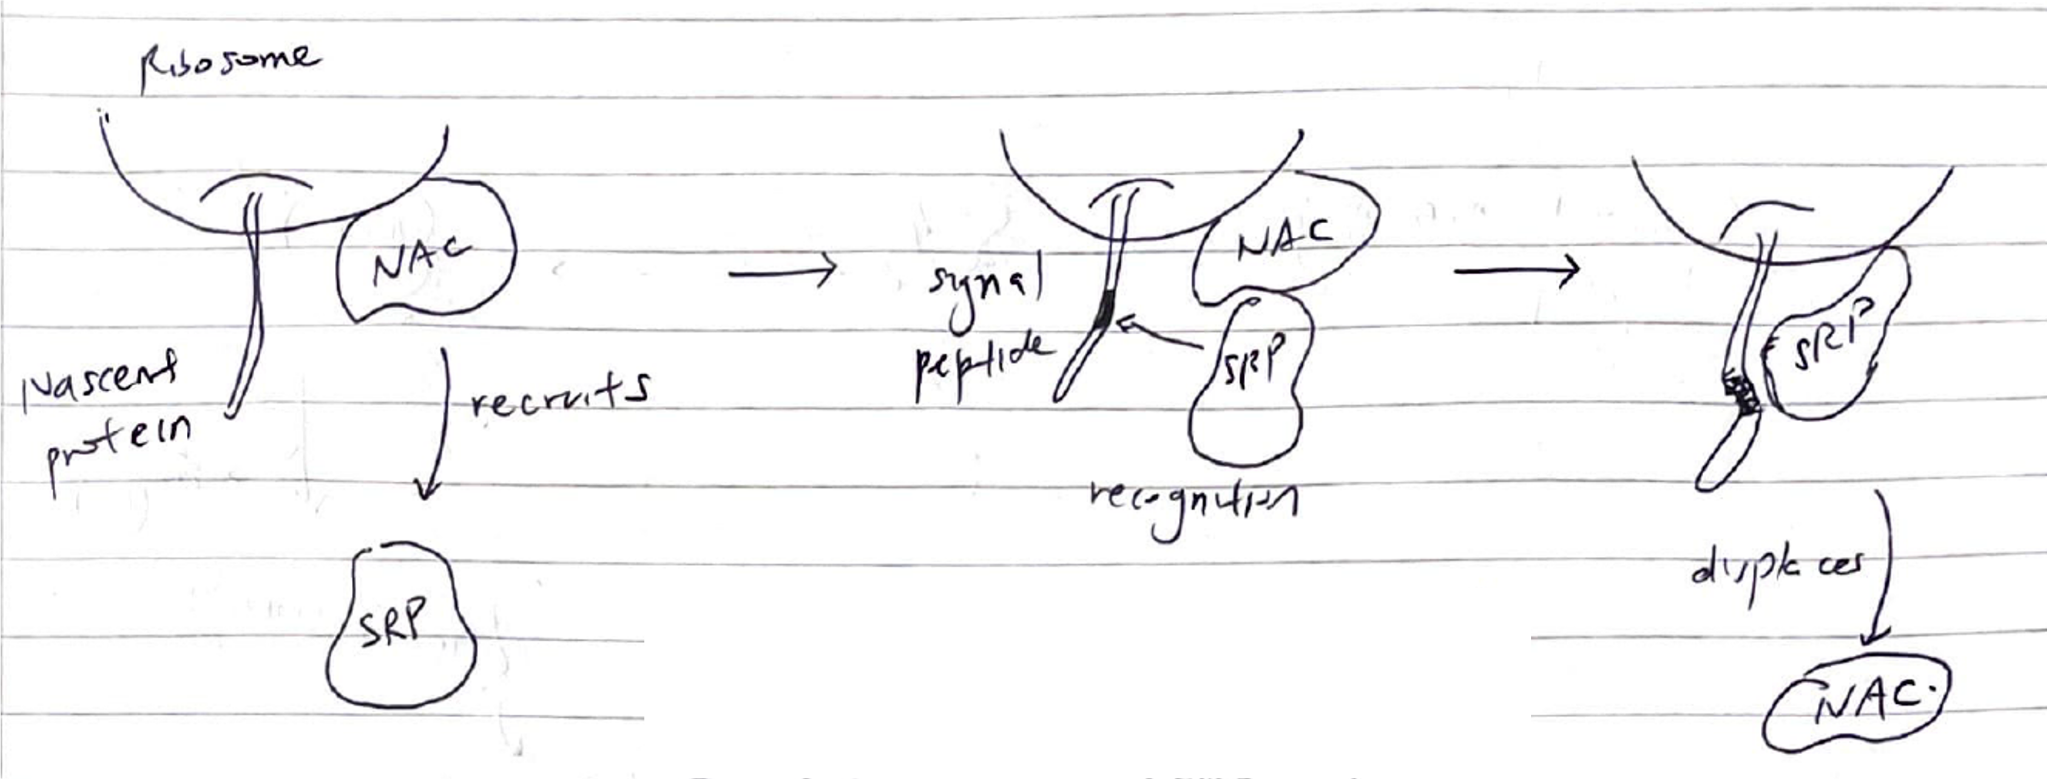 Ribosome
NAC
Nascent
protein
recruits
SRP
signal
peptide
NAC
SRP
recognition
SRP
displaces
NAC